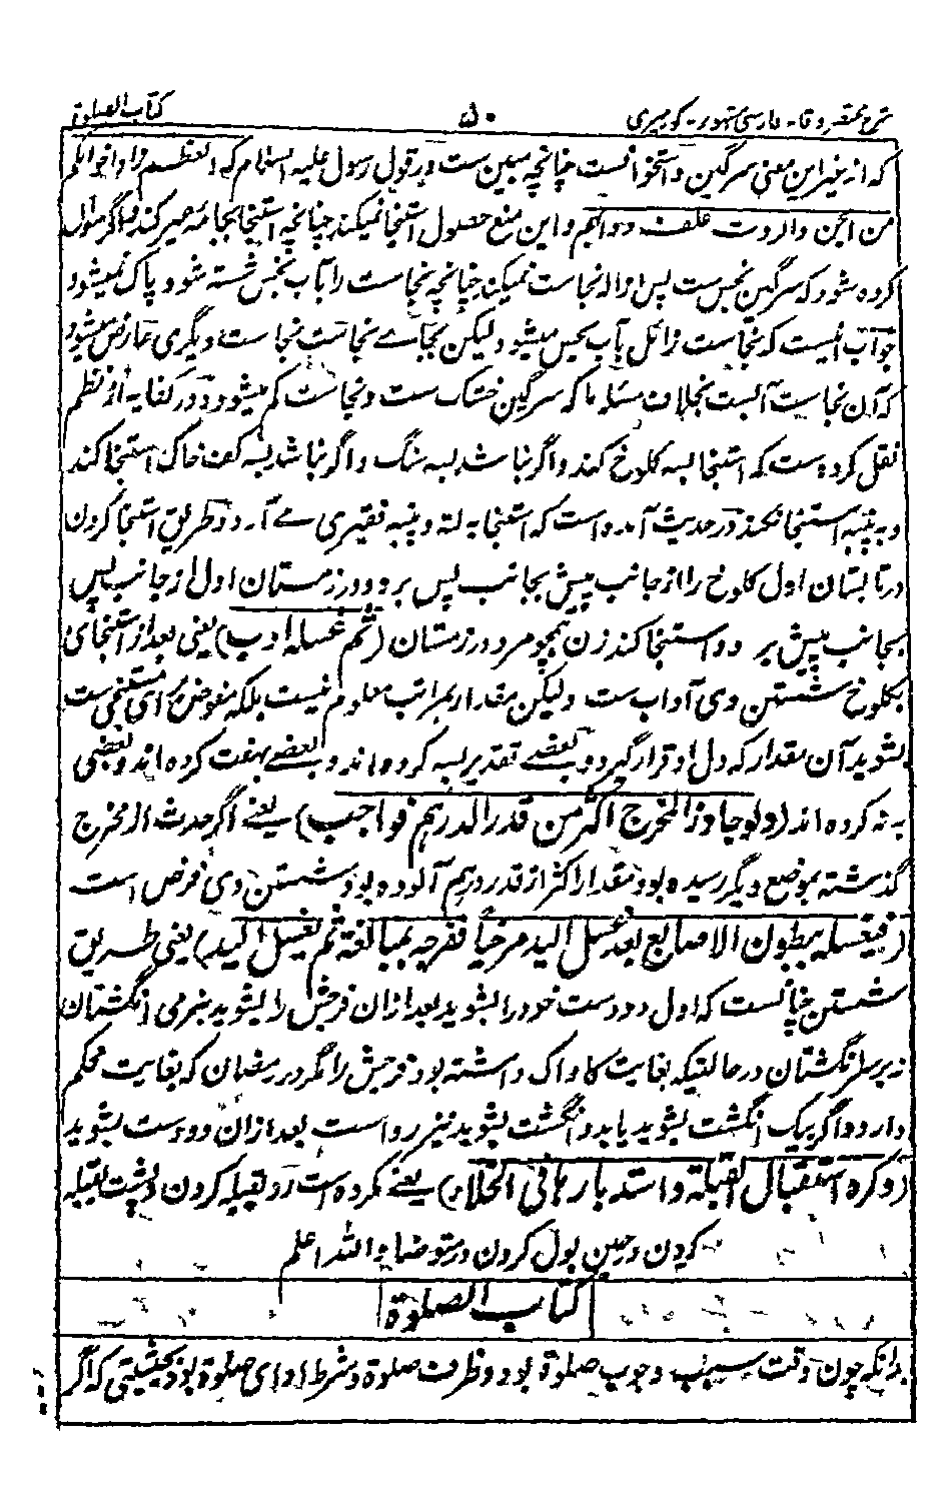 شرح مختصر وقایه فارسی مشهور به کورمیری ۵۰ کتاب الصلوة
که از غیر این معنی سرگین و استخوانست چنانچه مبین ست در قول رسول علیه السلام که العظم زاد اخوانکم
من الجن والروث علف دوابهم و این منع حصول استنجا نمیکند چنانچه استنجا بجامهٔ غیر کند و اگر سوال
کرده شود که سرگین نجس ست پس ازالهٔ نجاست نمیکند چنانچه نجاست را بآب نجس شسته شود پاک نمیشود
جواب آنست که نجاست زائل بآب نجس میشود لیکن بجاے نجاست نجاست دیگری عارض میشود
که آن نجاست آبست بخلاف مسئله ما که سرگین خشک ست و نجاست کم میشود و در کفایه از نظم
نقل کرده ست که استنجا بسه کلوخ کند و اگر نباشد بسه سنگ و اگر نباشد بسه کف خاک استنجا کند
و به پنبه استنجا نکند در حدیث آمده است که استنجا به لته و پنبه فقیری مے آرد و طریق استنجا کردن
در تابستان اول کلوخ را از جانب پیش بجانب پس برد و در زمستان اول از جانب پس
بجانب پیش برد و استنجا کند زن همچو مرد در زمستان (ثم غسله ادب) یعنی بعد از استنجای
بکلوخ شستن وی آداب ست ولیکن مقدار بمراتب معلوم نیست بلکه مفوض برای مستنجی ست
بشوید آن مقدار که دل او قرار گیرد و بعضے تقدیر بسه کرده اند و بعضے بهفت کرده اند و بعضی
به نه کرده اند (ولو جاوز المخرج اکثر من قدر الدرهم فواجب) یعنے اگر حدث از مخرج
گذشته بموضع دیگر رسیده بود مقدار اکثر از قدر درهم آلوده بود شستن وی فرض است
(فیغسله ببطون الاصابع بعد غسل الید مرخیاً مخرجه بمبالغة ثم یغسل الید) یعنی طریق
شستن چنانست که اول دو دست خود را بشوید بعد ازان فرجش را بشوید بنرمی انگشتان
نه بسر انگشتان در حالتیکه بغایت کاواک داشته بود فرجش را مگر در رمضان که بغایت محکم
دارد و اگر بیک انگشت بشوید یا بدو انگشت بشوید نیز رواست بعد ازان دو دست بشوید
(وکره استقبال القبلة واستدبارها فی الخلاء) یعنے مکروه است رو بقبله کردن و پشت بقبله
کردن در حین بول کردن و متوضا والله اعلم
کتاب الصلوة
بدانکه چون وقت سبب وجوب صلوة بود و ظرف صلوة و شرط ادای صلوة بود بحیثیتی که اگر